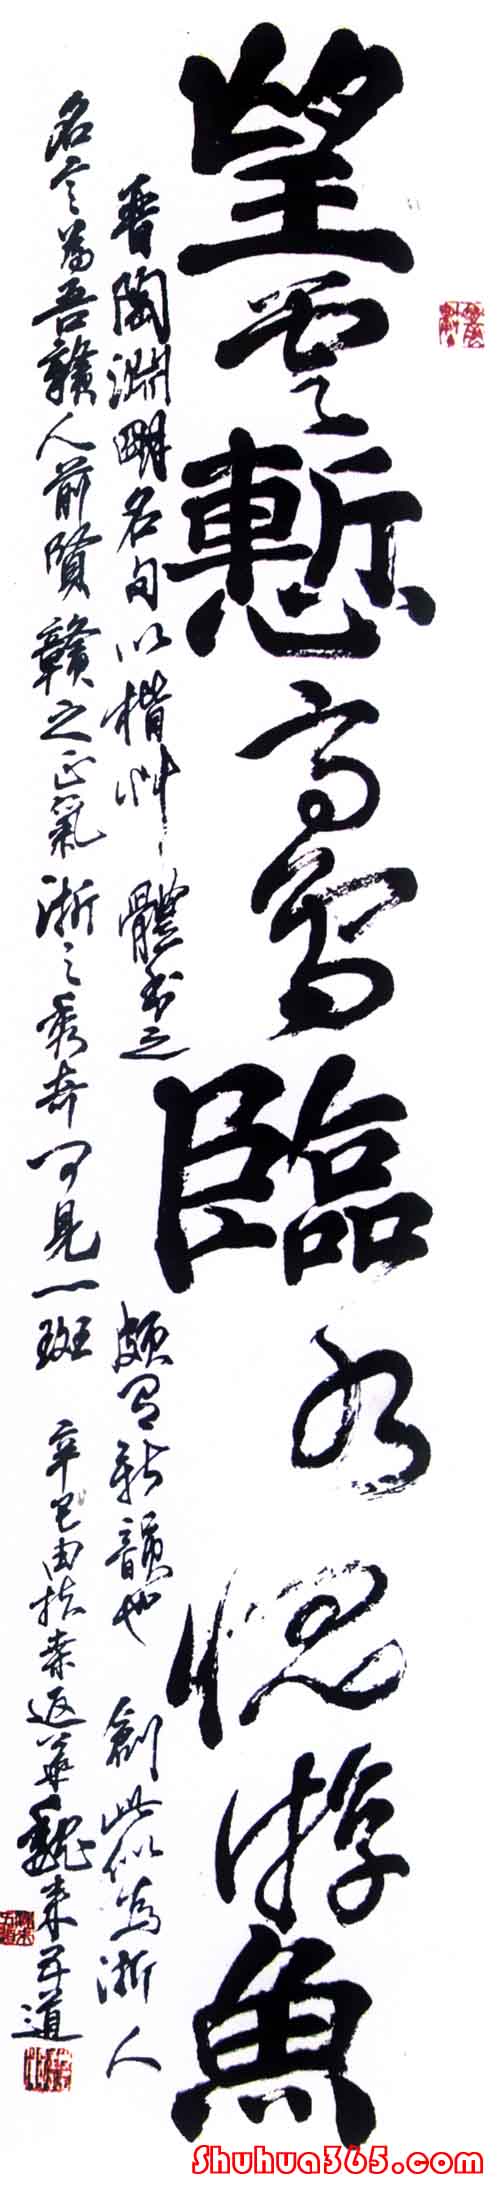 望雲慙高鳥臨水愧游魚
晋陶淵明名句以楷艸体書之頗有新韻也創此似為浙人
名言為吾贛人前賢贛之正氣浙之秀奇可見一斑辛巳由扶桑返華魏來五道
Shuhua365.com